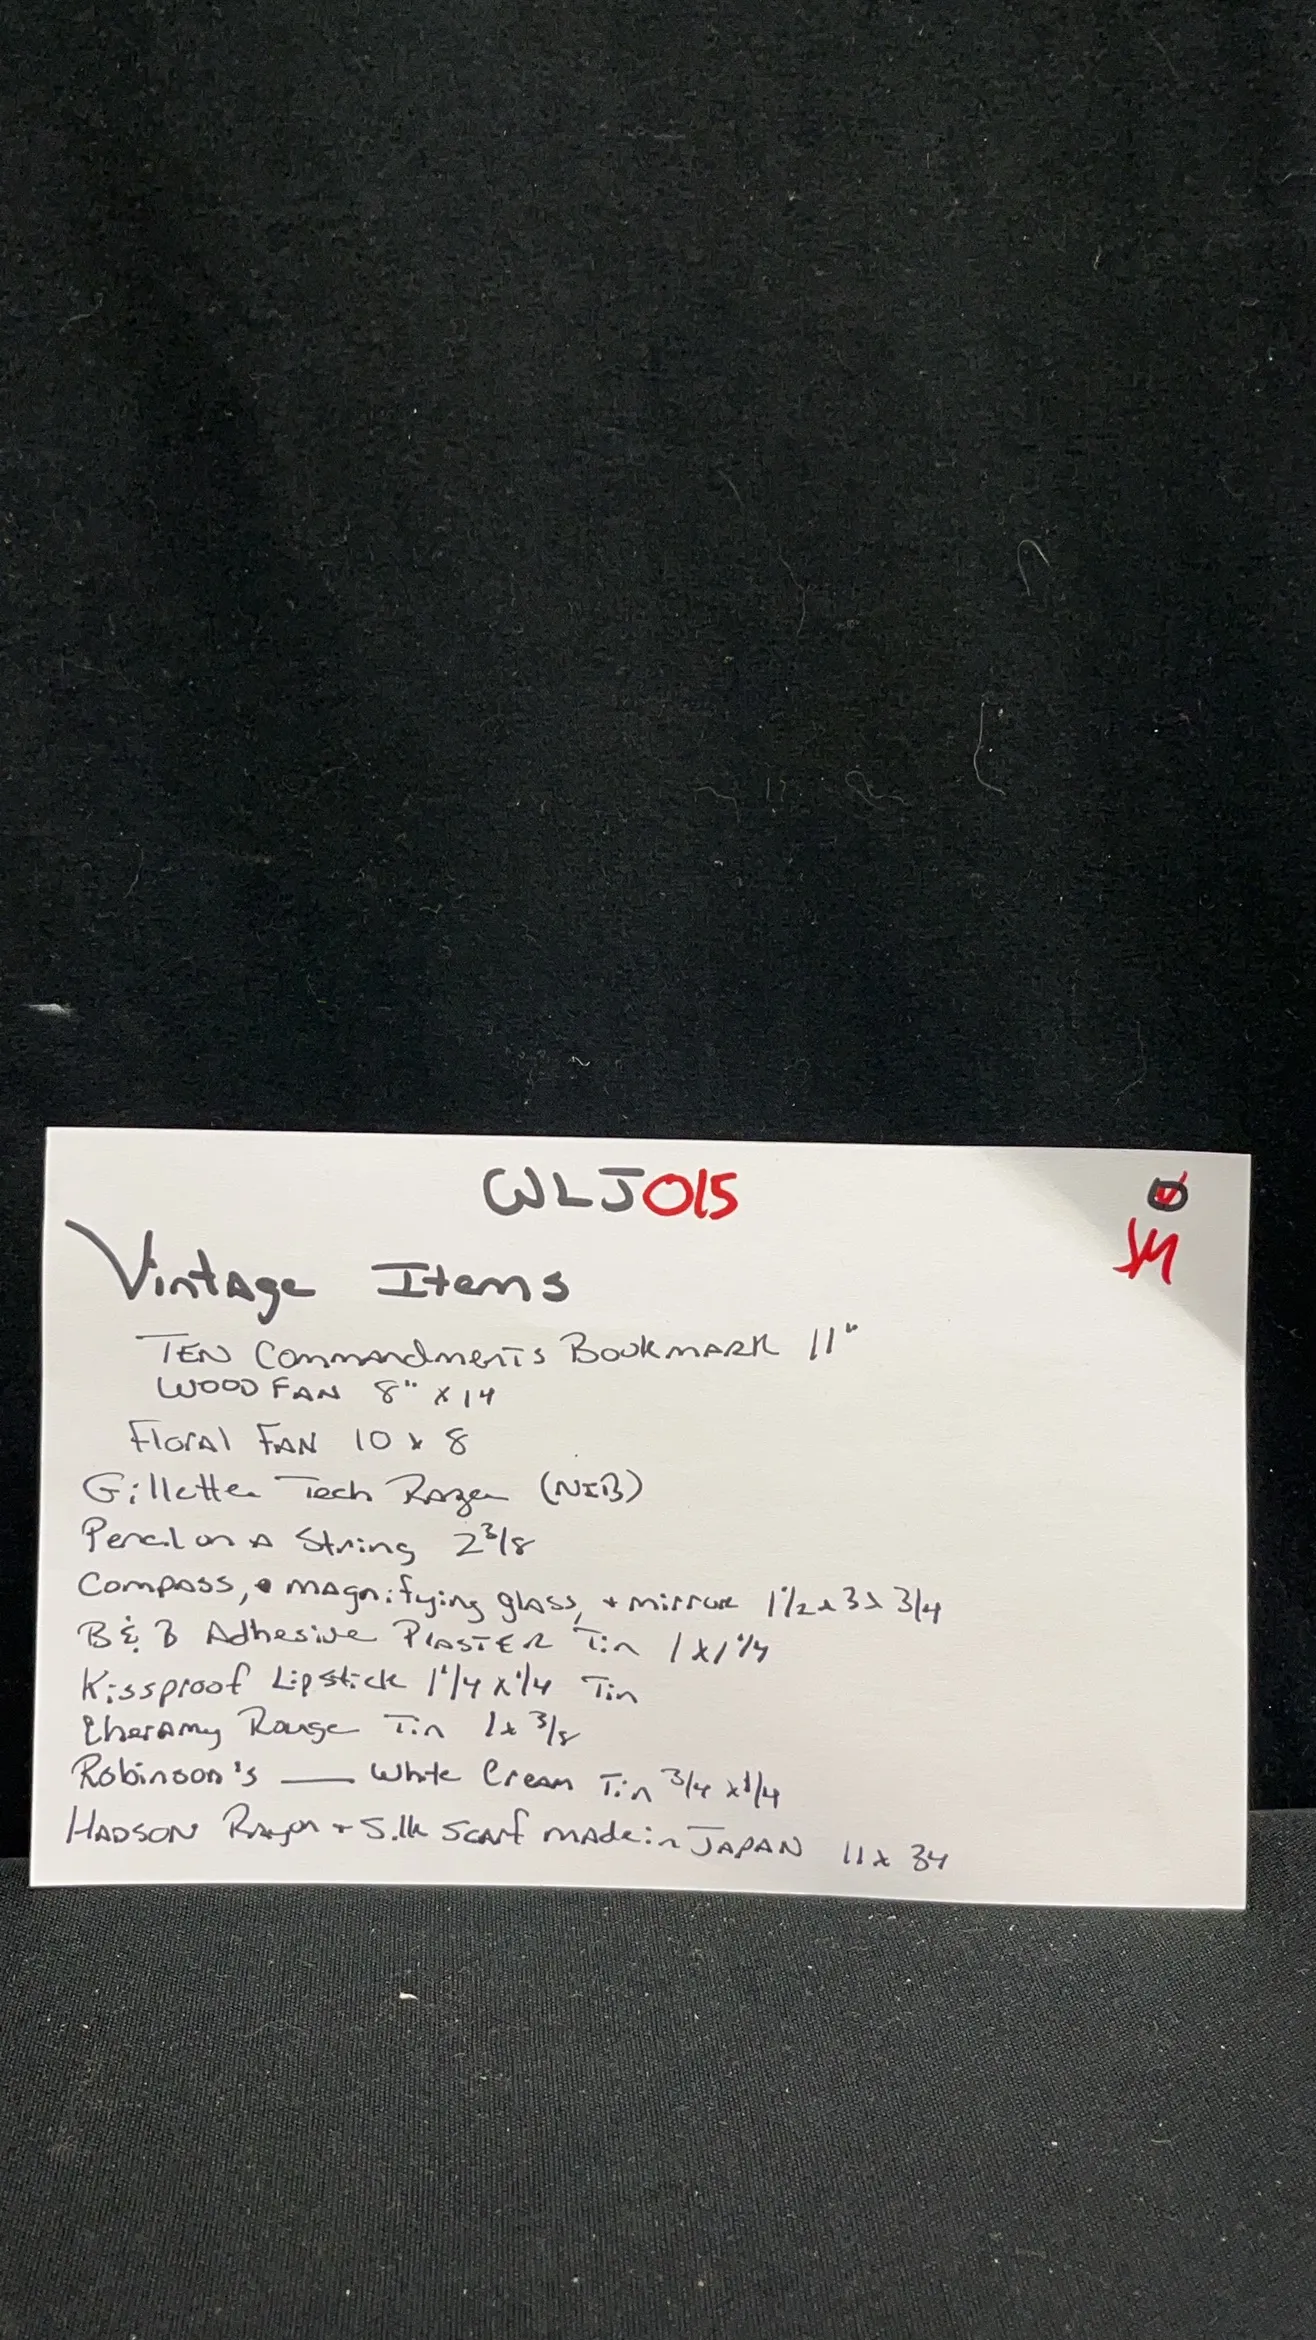 WLJ015
JM
Vintage Items
TEN Commandments BOOKMARK 11"
WOOD FAN 8" x 14
Floral FAN 10 x 8
Gillette Tech Razer (NIB)
Pencil on A String 2 3/8
Compass, magnifying glass, + mirror 1 1/2 x 3 x 3/4
B & B Adhesive PLASTER Tin 1 x 1 1/4
Kissproof Lipstick 1 1/4 x 1/4 Tin
Cheramy Rouge Tin 1 x 3/8
Robinson's — White Cream Tin 3/4 x 1/4
HADSON Rayon + Silk Scarf made in JAPAN 11 x 34